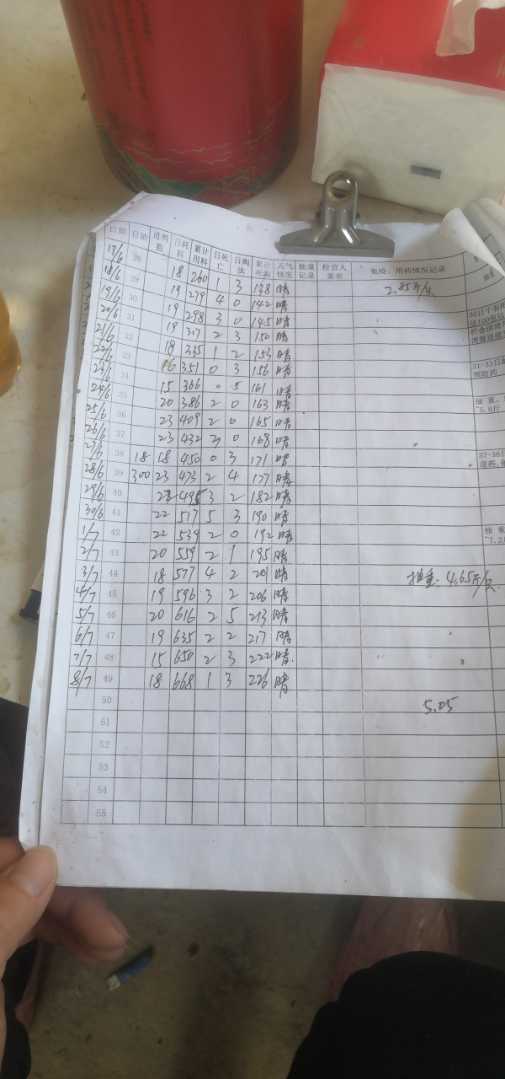 日期 日龄 日耗料 累计用料 日死亡 日淘汰 累计死淘 天气情况 检查人签名 免疫、用药情况记录
17/6 28 18 260 1 3 138 晴 2.85斤/只
18/6 29 19 279 4 0 142 晴
19/6 30 19 298 3 0 145 晴
20/6 31 19 317 2 3 150 晴
21/6 32 18 335 1 2 153 晴
22/6 33 16 351 0 3 156 晴
23/6 34 15 366 0 5 161 晴
24/6 35 20 386 2 0 163 晴
25/6 36 23 409 2 0 165 晴
26/6 37 23 432 0 168 晴
38 18 18 450 0 3 171 晴
28/6 39 300 23 473 2 4 177 晴
29/6 40 495 3 2 182 晴
30/6 41 22 517 5 3 190 晴
1/7 42 22 539 2 0 192 晴
2/7 43 20 559 2 1 195 晴
3/7 44 18 577 4 2 201 晴 4.65斤/只
4/7 45 19 596 3 2 206 晴
5/7 46 20 616 2 5 213 晴
6/7 47 19 635 2 2 217 晴
7/7 48 15 650 2 3 222 晴
8/7 49 18 668 1 3 226 晴
50 5.05
51
52
53
54
55